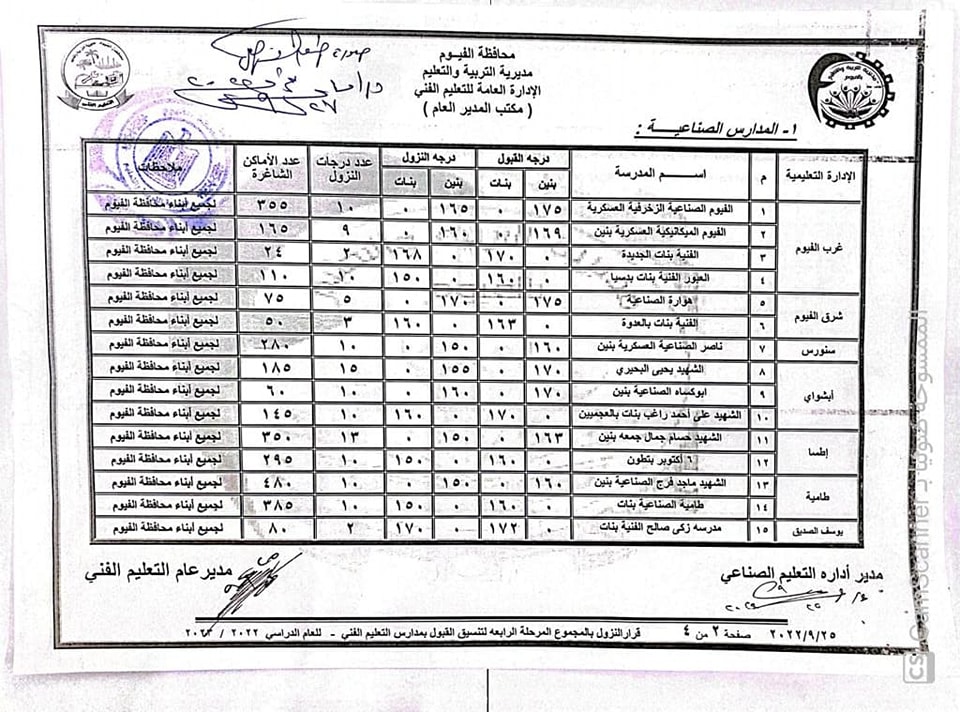 محافظة الفيوم
مديرية التربية والتعليم
الإدارة العامة للتعليم الفني
( مكتب المدير العام )
١- المدارس الصناعيـــــــة :
الإدارة التعليمية م اســـــم المدرسة درجه القبول درجه النزول عدد درجات النزول عدد الأماكن الشاغرة ملاحظات
بنين بنات بنين بنات
غرب الفيوم
١ الفيوم الصناعية الزخرفية العسكرية ١٧٥ ٠ ١٦٥ ٠ ١٠ ٣٥٥ لجميع أبناء محافظة الفيوم
٢ الفيوم الميكانيكية العسكرية بنين ١٦٩ ٠ ١٦٠ ٠ ٩ ١٦٥ لجميع أبناء محافظة الفيوم
٣ الفنية بنات الجديدة ٠ ١٧٠ ٠ ١٦٨ ٢ ٢٤ لجميع أبناء محافظة الفيوم
٤ العبور الفنية بنات بدسيا ٠ ١٦٠ ٠ ١٥٠ ١٠ ١١٠ لجميع أبناء محافظة الفيوم
شرق الفيوم
٥ هوارة الصناعية ١٧٥ ٠ ١٧٠ ٠ ٥ ٧٥ لجميع أبناء محافظة الفيوم
٦ الفنية بنات بالعدوة ٠ ١٦٣ ٠ ١٦٠ ٣ ٥٠ لجميع أبناء محافظة الفيوم
سنورس
٧ ناصر الصناعية العسكرية بنين ١٦٠ ٠ ١٥٠ ٠ ١٠ ٢٨٠ لجميع أبناء محافظة الفيوم
أبشواي
٨ الشهيد يحيى البحيري ١٧٠ ٠ ١٥٥ ٠ ١٥ ١٨٥ لجميع أبناء محافظة الفيوم
٩ ابوكساه الصناعية بنين ١٧٠ ٠ ١٦٠ ٠ ١٠ ٦٠ لجميع أبناء محافظة الفيوم
١٠ الشهيد على أحمد راغب بنات بالعجميين ٠ ١٧٠ ٠ ١٦٠ ١٠ ١٤٥ لجميع أبناء محافظة الفيوم
إطسا
١١ الشهيد حسام جمال جمعه بنين ١٦٣ ٠ ١٥٠ ٠ ١٣ ٣٥٠ لجميع أبناء محافظة الفيوم
١٢ ٦ أكتوبر بتطون ٠ ١٦٠ ٠ ١٥٠ ١٠ ٢٩٥ لجميع أبناء محافظة الفيوم
طامية
١٣ الشهيد ماجد فرج الصناعية بنين ١٦٠ ٠ ١٥٠ ٠ ١٠ ٤٨٠ لجميع أبناء محافظة الفيوم
١٤ طامية الصناعية بنات ٠ ١٦٠ ٠ ١٥٠ ١٠ ٣٨٥ لجميع أبناء محافظة الفيوم
يوسف الصديق
١٥ مدرسه زكى صالح الفنية بنات ٠ ١٧٢ ٠ ١٧٠ ٢ ٨٠ لجميع أبناء محافظة الفيوم
مدير أداره التعليم الصناعي
مدير عام التعليم الفني
٢٠٢٢/٩/٢٥ صفحة ٢ من ٤ قرار النزول بالمجموع المرحلة الرابعه لتنسيق القبول بمدارس التعليم الفني - للعام الدراسي ٢٠٢٢ / ٢٠٢٣
الممسوحة ضوئيا بـ CamScanner
CS